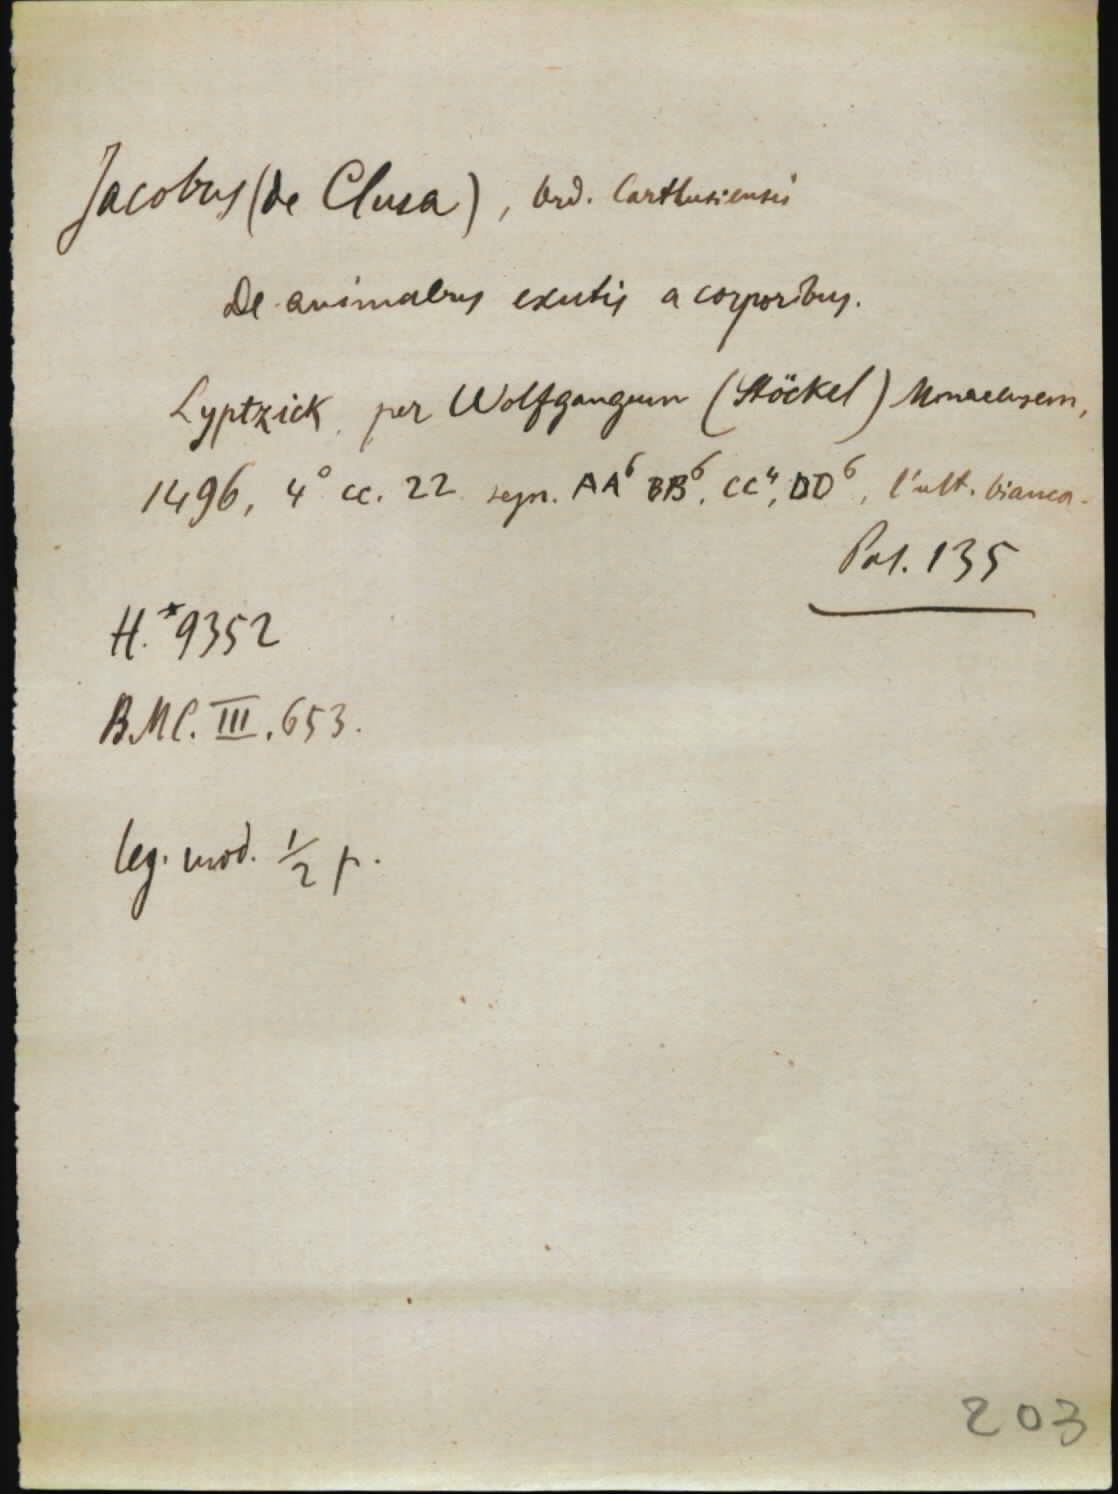 Jacobus (de Clusa), Ord. Carthusiensis
De animabus exutis a corporibus.
Lyptzick per Wolfgangum (Stöckel) Monacensem,
1496, 4° cc. 22 segn. AA⁶ BB⁶, CC⁴, DD⁶, l'ult. bianca.
Pol. 135
H.*9352
B.M.C. III. 653.
leg. mod. 1/2 p.
203